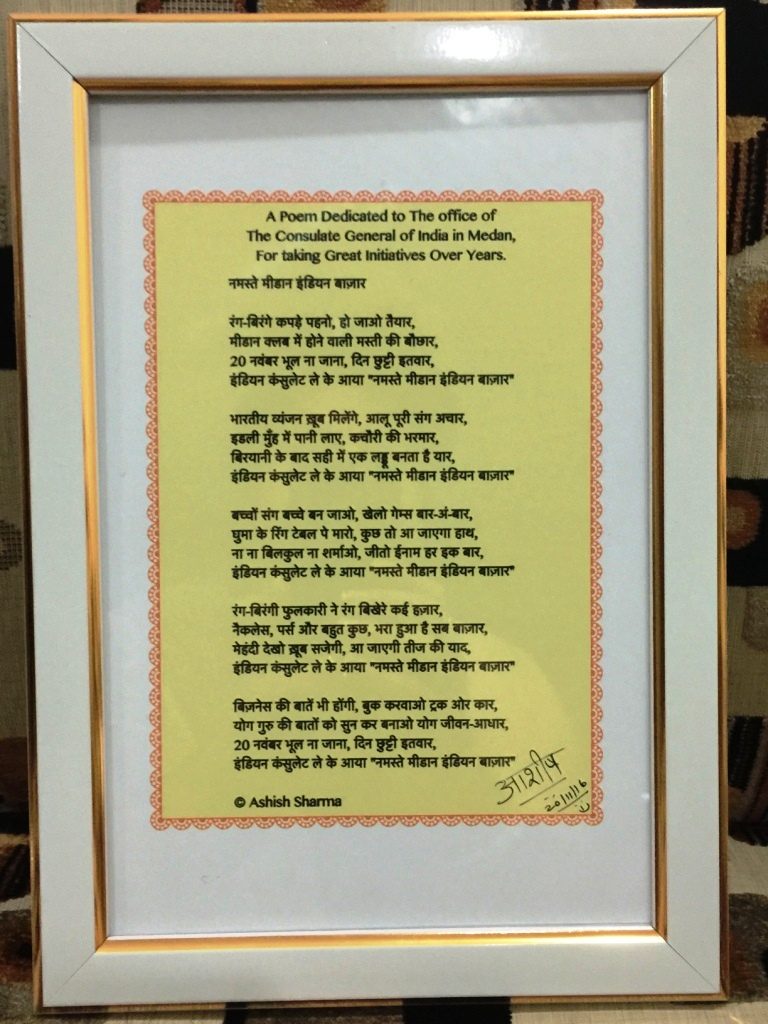 A Poem Dedicated to The office of
The Consulate General of India in Medan,
For taking Great Initiatives Over Years.
नमस्ते मीडान इंडियन बाज़ार
रंग-बिरंगे कपड़े पहनो, हो जाओ तैयार,
मीडान क्लब में होने वाली मस्ती की बौछार,
20 नवंबर भूल ना जाना, दिन छुट्टी इतवार,
इंडियन कंसुलेट ले के आया "नमस्ते मीडान इंडियन बाज़ार"
भारतीय व्यंजन ख़ूब मिलेंगे, आलू पूरी संग अचार,
इडली मुँह में पानी लाए, कचौरी की भरमार,
बिरयानी के बाद सही में एक लड्डू बनता है यार,
इंडियन कंसुलेट ले के आया "नमस्ते मीडान इंडियन बाज़ार"
बच्चों संग बच्चे बन जाओ, खेलो गेम्स बार-अं-बार,
घुमा के रिंग टेबल पे मारो, कुछ तो आ जाएगा हाथ,
ना ना बिलकुल ना शर्माओ, जीतो ईनाम हर इक बार,
इंडियन कंसुलेट ले के आया "नमस्ते मीडान इंडियन बाज़ार"
रंग-बिरंगी फुलकारी ने रंग बिखेरे कई हज़ार,
नैकलेस, पर्स और बहुत कुछ, भरा हुआ है सब बाज़ार,
मेहंदी देखो ख़ूब सजेगी, आ जाएगी तीज की याद,
इंडियन कंसुलेट ले के आया "नमस्ते मीडान इंडियन बाज़ार"
बिज़नेस की बातें भी होंगी, बुक करवाओ ट्रक ओर कार,
योग गुरु की बातों को सुन कर बनाओ योग जीवन-आधार,
20 नवंबर भूल ना जाना, दिन छुट्टी इतवार,
इंडियन कंसुलेट ले के आया "नमस्ते मीडान इंडियन बाज़ार"
आशीष
20/11/16
© Ashish Sharma